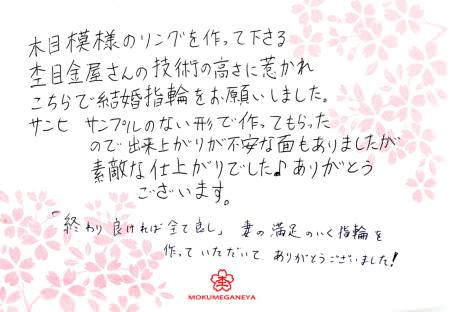 木目模様のリングを作って下さる
杢目金屋さんの技術の高さに惹かれ
こちらで結婚指輪をお願いしました。
サンヒ サンプルのない形で作ってもらった
ので出来上がりが不安な面もありましたが
素敵な仕上がりでした♪ありがとう
ございます。
「終わり良ければ全て良し」 妻の満足のいく指輪を
作っていただいて ありがとうございました!
杢
MOKUMEGANEYA